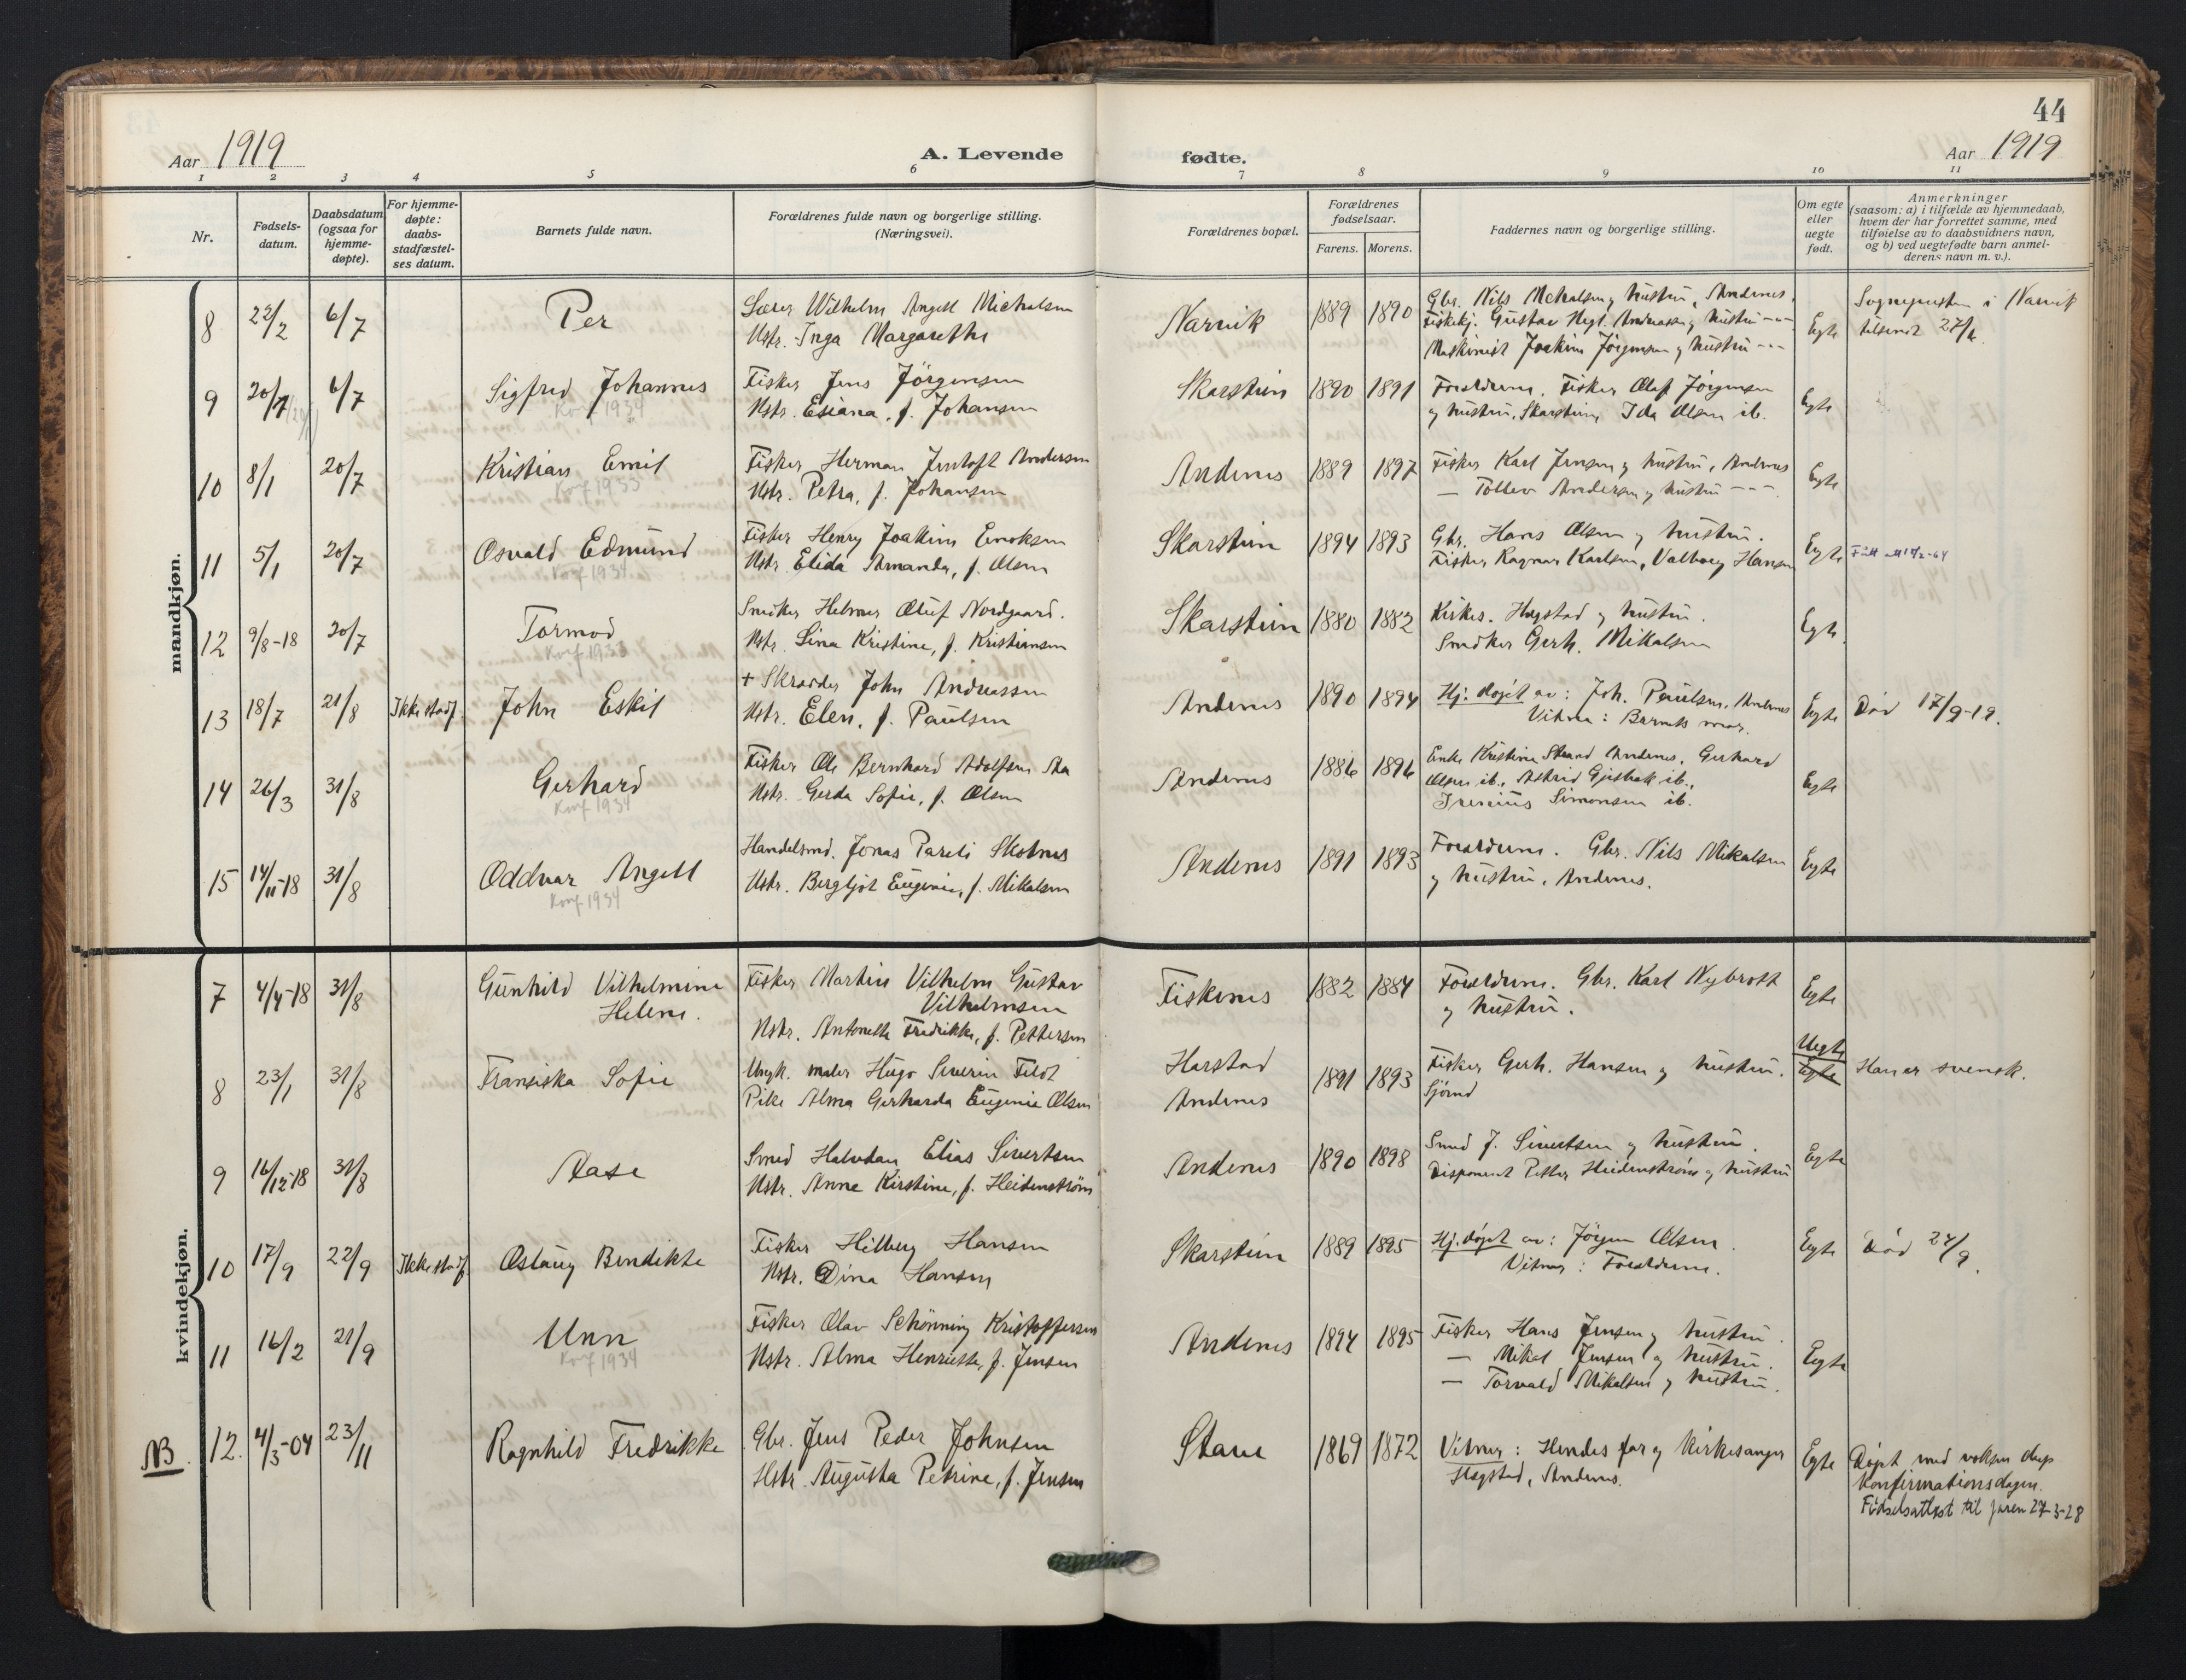 44
Aar 1919
A. Levende
fødte.
Aar 1919
1 2 3 4 5 6 7 8 9 10 11
Nr.
Fødsels-
datum.
Daabsdatum
(ogsaa for
hjemme-
døpte).
For hjemme-
døpte:
daabs-
stadfæstel-
ses datum.
Barnets fulde navn.
Forældrenes fulde navn og borgerlige stilling.
(Næringsvei).
Forældrenes bopæl.
Forældrenes
fødselsaar.
Farens. Morens.
Faddernes navn og borgerlige stilling.
Om egte
eller
uegte
født.
Anmerkninger
(saasom: a) i tilfælde av hjemmedaab,
hvem der har forrettet samme, med
tilføielse av to daabsvidners navn,
og b) ved uegtefødte barn anmel-
derens navn m. v.).
mandkjøn.
8 22/2 6/7 Per
Lærer Wilhelm Angell Michalsen
Hstr. Inga Margarethe
Narvik 1889 1890
Gbr. Nils Mehalsen og hustru, Andenes.
Fiskekj. Gustav Hegl. Andreassen og hustru -"-
Maskinist Joakim Jörgensen og hustru -"-
Egte
Sogneprästen i Narvik
tilsendt
9 20/7 6/7 Sigfred Johannes
Konf 1934
Fisker Jens Jörgensen
Hstr. Esiana, f. Johansen
Skarstein 1890 1891
Forældrene. Fisker Olaf Jörgensen
og hustru, Skarstein, Ida Olsen ib.
Egte
10 8/1 20/7 Kristian Emil
Konf 1933
Fisker Herman Jentoft Andersen
Hstr. Petra, f. Johansen
Andenes 1889 1897
Fisker Karl Jensen og hustru, Andenes
— Tollev Andersen og hustru -"-
Egte
11 5/1 20/7 Osvald Edmund
Konf 1934
Fisker Henry Joakim Enoksen
Hstr. Elida Amanda, f. Olsen
Skarstein 1894 1893
Gbr. Hans Olsen og hustru.
Fisker Ragnar Karlsen, Valborg Hansen
Egte
12 9/8-18 20/7 Tormod
Konf 1933
Snedker Helmer Oluf Nordgaard.
Hstr. Lina Kristine, f. Kristiansen
Skarstein 1880 1882
Kirkes. Hagstad og hustru.
Snedker Gerh. Mikalsen
Egte.
13 18/7 21/8 Ikke stadf. John Eskil
+ Skrædder John Andreassen
Hstr. Elen, f. Paulsen
Andenes 1890 1894
Hj. døpt av: Joh. Paulsen, Andenes
Vitne: Barnets mor.
Egte
Død 17/9-19.
14 26/3 31/8 Gerhard
Konf 1934
Fisker Ole Bernhard Adolfsen
Hstr. Gerda Sofie, f. Olsen
Andenes 1886 1896
Enke Kristine Strand Andenes, Gerhard
Olsen ib., Astrid Gjesbak ib.,
Irenius Simonsen ib.
Egte
15 14/11-18 31/8 Oddvar Angell
Konf 1934
Handelsmd. Jonas Pareli Skotnes
Hstr. Bergljot Eugenie, f. Mikalsen
Andenes 1891 1893
Forældrene. Gbr. Nils Mikalsen
og hustru, Andenes.
Egte
kvindekjøn.
7 4/4-18 31/8 Gunhild Vilhelmine
Helene.
Fisker Martin Vilhelm Gustav
Vilhelmsen
Hstr. Antonette Fredrikke, f. Pettersen
Fiskenes 1882 1884
Forældrene. Gbr. Karl Nybrott
og hustru.
Egte
8 23/1 31/8 Fransiska Sofie
Ungk. maler Hugo Severin Feldt
Pike Alma Gerharda Eugenie Olsen
Harstad
Andenes
1891 1893
Fisker Gerh. Hansen og hustru.
Uegte
Egte
Han er svensk.
9 16/12-18 31/8 Aase
Smed Halvdan Elias Sivertsen
Hstr. Anna Kirstine, f. Heidenstrøm
Andenes 1890 1898
Smed J. Sivertsen og hustru.
Disponent Petter Heidenstrøm og hustru
Egte
10 17/9 22/9 Ikke stadf. Oslaug Bendikte
Fisker Hilberg Hansen
Hstr. Dina Hansen
Skarstein 1889 1895
Hj. døpt av: Jörgen Olsen.
Vitner: Forældrene.
Egte
Död 24/9.
11 16/2 21/9 Unn
Konf 1934
Fisker Olav Schönning Kristoffersen
Hstr. Alma Henriette, f. Jensen
Andenes 1894 1895
Fisker Hans Jensen og hustru.
— Mikal Jensen og hustru.
— Torvald Mikalsen og hustru.
Egte
NB. 12. 4/3-04 23/11 Ragnhild Fredrikke
Gbr. Jens Peder Johnsen
Hstr. Augusta Petrine, f. Jensen
Stave 1869 1872
Vitner: Hendes far og kirkesanger
Hagstad, Andenes.
Egte
Døpt med voksen dåp
Konfirmationsdagen.
Fødselsattest til faren 27-3-28